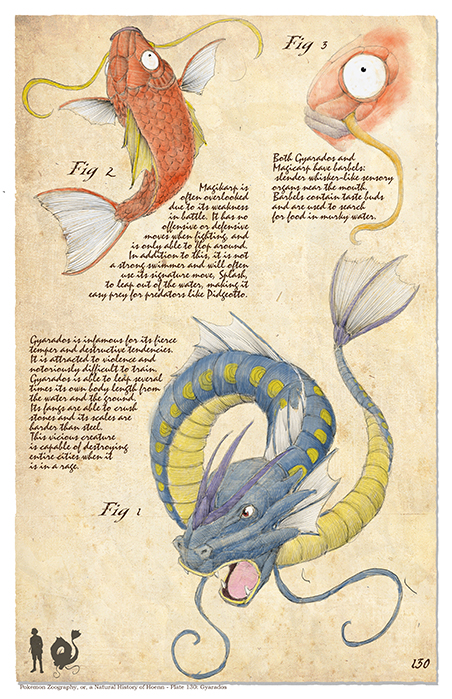 Fig 3
Fig 2
Both Gyarados and
Magicarp have barbels:
slender whisker-like sensory
organs near the mouth.
Barbels contain taste buds
and are used to search
for food in murky water.
Magikarp is
often overlooked
due to its weakness
in battle. It has no
offensive or defensive
moves when fighting, and
is only able to flop around.
In addition to this, it is not
a strong swimmer and will often
use its signature move, Splash,
to leap out of the water, making it
easy prey for predators like Pidgeotto.
Gyarados is infamous for its fierce
temper and destructive tendencies.
It is attracted to violence and
notoriously difficult to train.
Gyarados is able to leap several
times its own body length from
the water and the ground.
Its fangs are able to crush
stones and its scales are
harder than steel.
This vicious creature
is capable of destroying
entire cities when it
is in a rage.
Fig 1
130
Pokemon Zoography, or, a Natural History of Hoenn - Plate 130: Gyarados